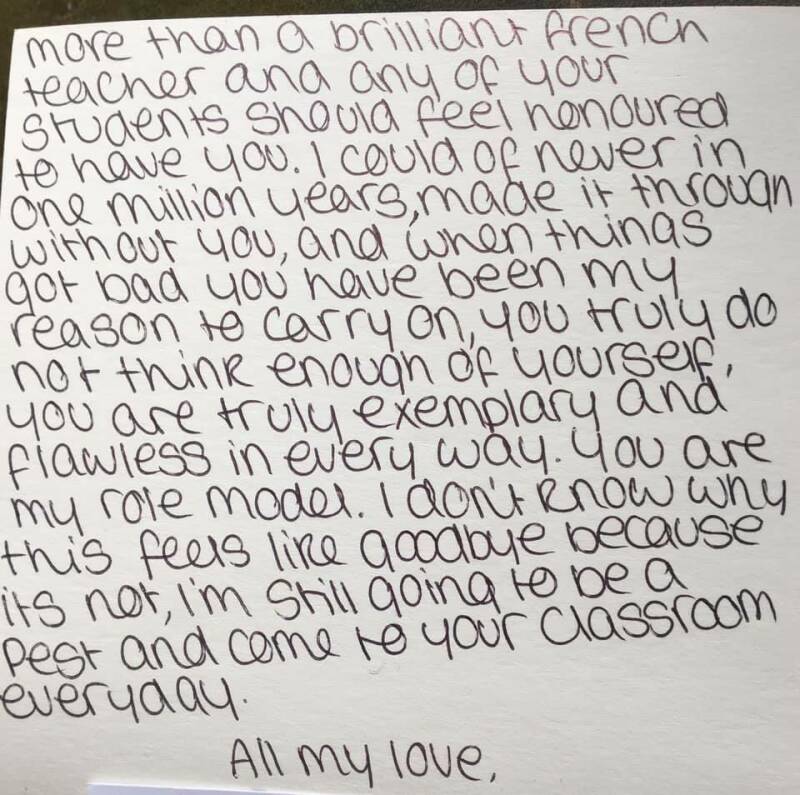 more than a brilliant french
teacher and any of your
students should feel honoured
to have you. I could of never in
one million years, made it through
without you, and when things
got bad you have been my
reason to carry on, you truly do
not think enough of yourself,
you are truly exemplary and
flawless in every way. You are
my role model. I don't know why
this feels like goodbye because
its not, I'm still going to be a
pest and come to your classroom
everyday.
All my love,